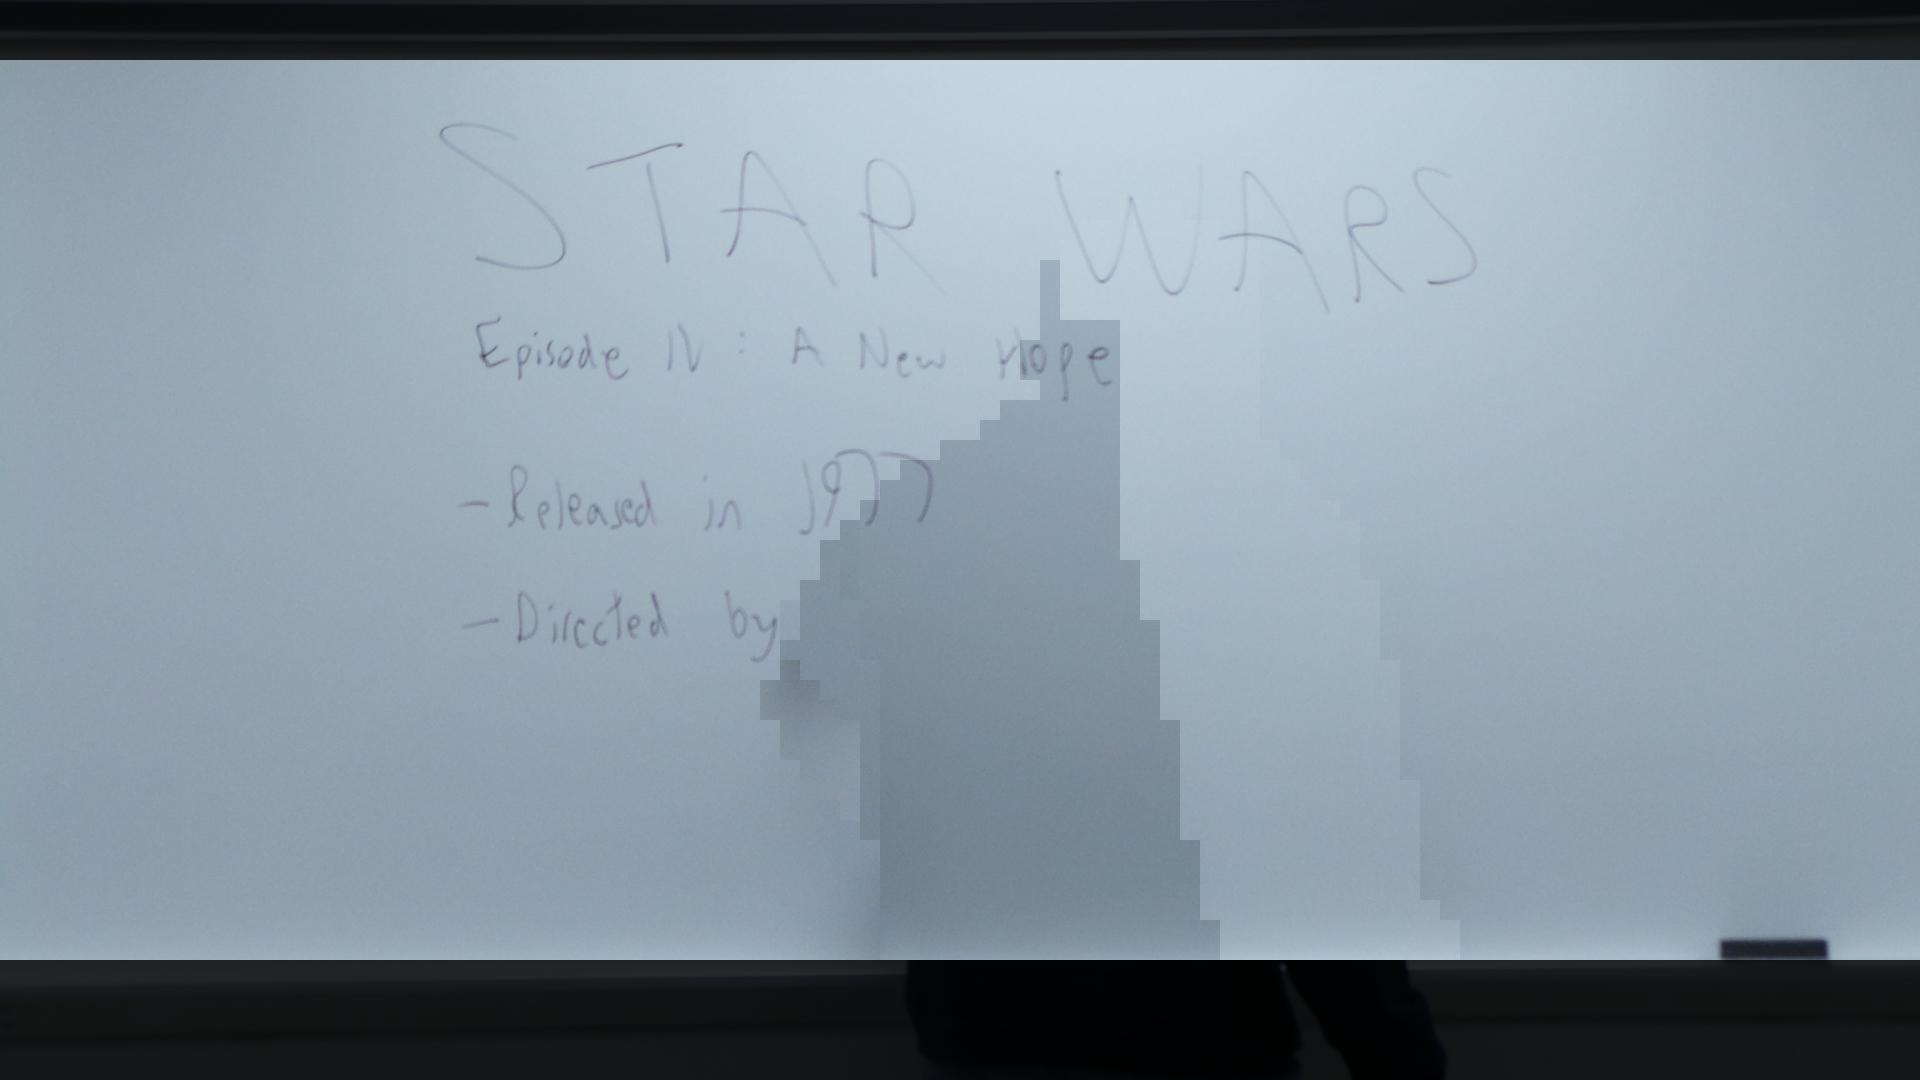 STAR WARS
Episode IV : A New Hope
- Released in 1977
- Directed by